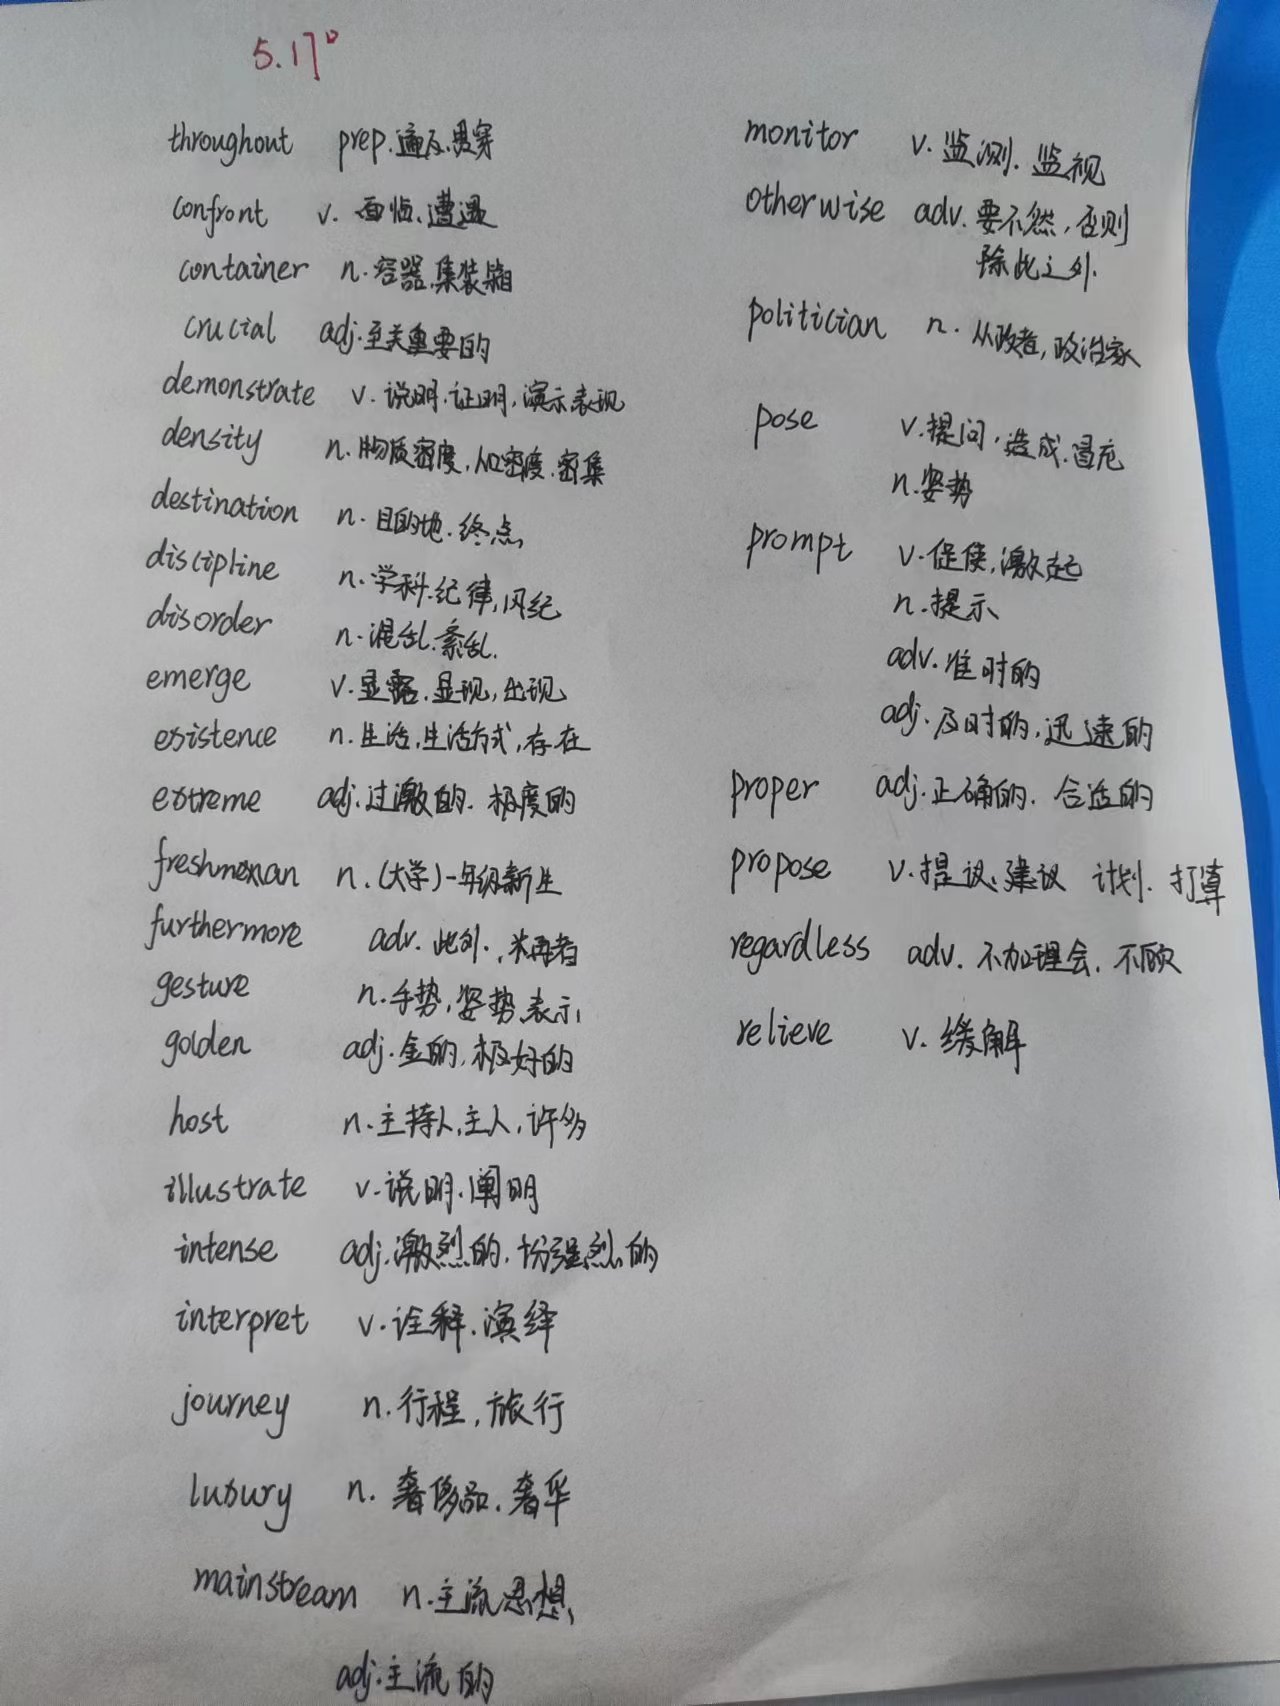 5.17
throughout prep.遍及.贯穿
confront v. 面临、遭遇
container n.容器.集装箱
crucial adj.至关重要的
demonstrate v.说明.证明,演示表现
density n.物质密度,人口密度.密集
destination n.目的地.终点
discipline n.学科.纪律,风纪
disorder n.混乱.紊乱.
emerge v.显露.显现,出现
existence n.生活,生活方式,存在
extreme adj.过激的.极度的
n.(大学)一年级新生
furthermore adv.此外.,再者
gesture n.手势,姿势.表示
golden adj.金的,极好的
host n.主持人,主人,许多
illustrate v.说明.阐明
intense adj.激烈的.十分强烈的
interpret v.诠释.演绎
journey n.行程,旅行
luxury n.奢侈品.奢华
mainstream n.主流思想
adj.主流的
monitor v.监测.监视
otherwise adv.要不然,否则
除此之外.
politician n.从政者,政治家
pose v.提问,造成.冒充
n.姿势
prompt v.促使,激起
n.提示
adv.准时的
adj.及时的,迅速的
proper adj.正确的.合适的
propose v.提议.建议 计划.打算
regardless adv.不加理会.不顾
relieve v.缓解